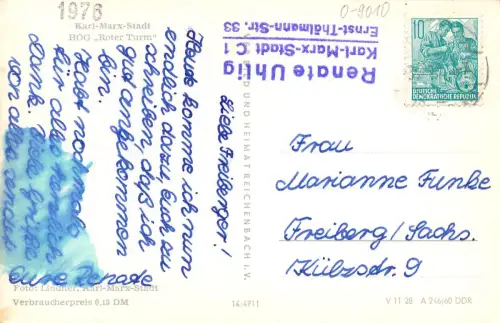 1976
Karl-Marx-Stadt
HOG „Roter Turm"
0-9010
Renate Uhlig
Karl-Marx-Stadt C 1
Ernst-Thälmann-Str. 33
10
DEUTSCHE
DEMOKRATISCHE REPUBLIK
Liebe Freiberger!
Heute komme ich nun
endlich dazu, Euch zu
schreiben, daß ich
gut angekommen
bin.
Habt nochmals
für alles vielen
Dank. Es grüßt
von allen
Eure Renate
Frau
Marianne Funke
Freiberg/Sachs.
Külzstr. 9
BILD UND HEIMAT REICHENBACH I. V.
Foto: Lindner, Karl-Marx-Stadt
Verbraucherpreis 0,15 DM
14/4711
V 11 28 A 246/60 DDR